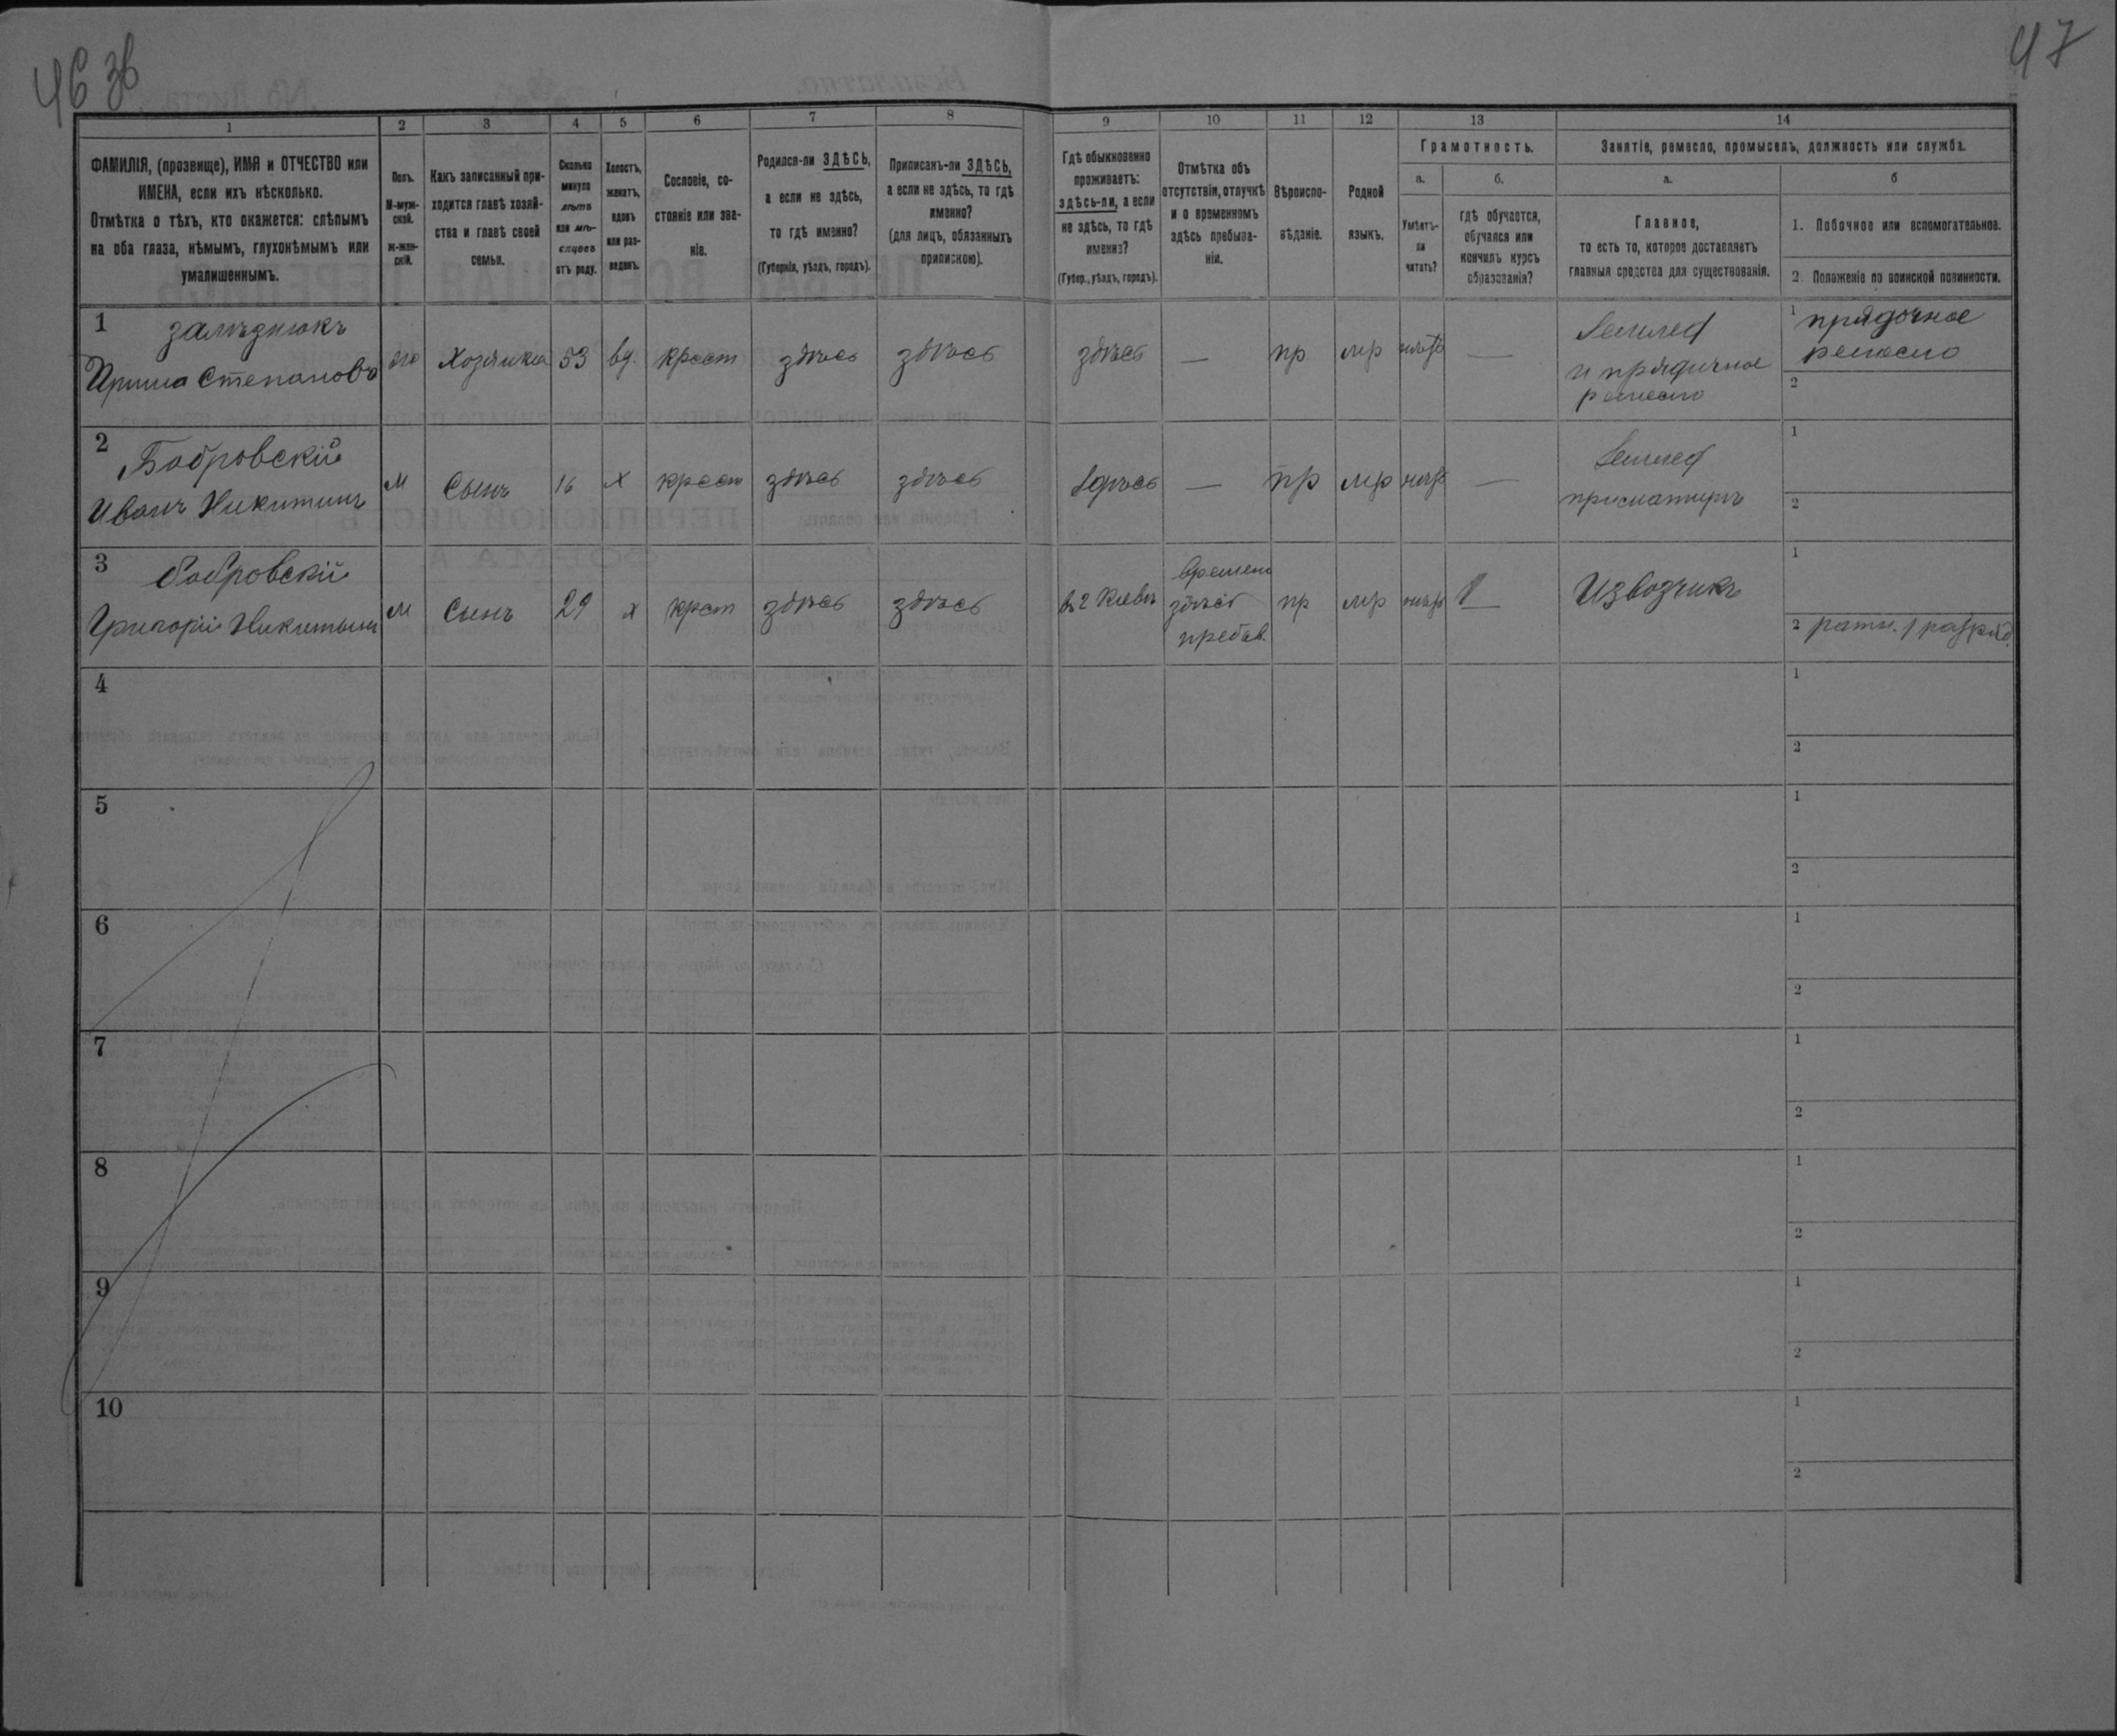 46 зв
47
1
2
3
4
5
6
7
8
9
10
11
12
13
14
ФАМИЛІЯ, (прозвище), ИМЯ и ОТЧЕСТВО или
ИМЕНА, если ихъ нѣсколько.
Отмѣтка о тѣхъ, кто окажется: слѣпымъ
на оба глаза, нѣмымъ, глухонѣмымъ или
умалишеннымъ.
Полъ.
М-муж-
ской.
ж-жен-
скій.
Какъ записанный при-
ходится главѣ хозяй-
ства и главѣ своей
семьи.
Сколько
минуло
лѣтъ
или мѣ-
сяцевъ
отъ роду.
Холостъ,
женатъ,
вдовъ
или раз-
веденъ.
Сословіе, со-
стояніе или зва-
ніе.
Родился-ли ЗДѢСЬ,
а если не здѣсь,
то гдѣ именно?
(Губернія, уѣздъ, городъ).
Приписанъ-ли ЗДѢСЬ,
а если не здѣсь, то гдѣ
именно?
(для лицъ, обязанныхъ
припискою).
Гдѣ обыкновенно
проживаетъ:
здѣсь-ли, а если
не здѣсь, то гдѣ
именно?
(Губер., уѣздъ, городъ).
Отмѣтка объ
отсутствіи, отлучкѣ
и о временномъ
здѣсь пребыва-
ніи.
Вѣроиспо-
вѣданіе.
Родной
языкъ.
Грамотность.
а.
Умѣетъ-
ли
читать?
б.
гдѣ обучается,
обучался или
кончилъ курсъ
образованія?
Занятіе, ремесло, промыселъ, должность или служба.
а.
Главное,
то есть то, которое доставляетъ
главныя средства для существованія.
б
1. Побочное или вспомогательное.
2. Положеніе по воинской повинности.
1
Ирина Степанова
Хозяйка
53
вд.
крест
здѣсь
здѣсь
здѣсь
—
пр
мр
—
и прядичное
ремесло
1
прядочное
ремесло
2
2
Бобровскій
Иванъ Никитинъ
м
Сынъ
16
х
крест
здѣсь
здѣсь
Здѣсь
—
пр
мр
—
1
2
3
бобровскій
Григорій Никитинъ
м
Сынъ
29
х
крест
здѣсь
здѣсь
Кіевъ
времено
здѣсь
пребыв.
пр
мр
Извозчикъ
1
2 ратн. 1 разряд.
4
1
2
5
1
2
6
1
2
7
1
2
8
1
2
9
1
2
10
1
2